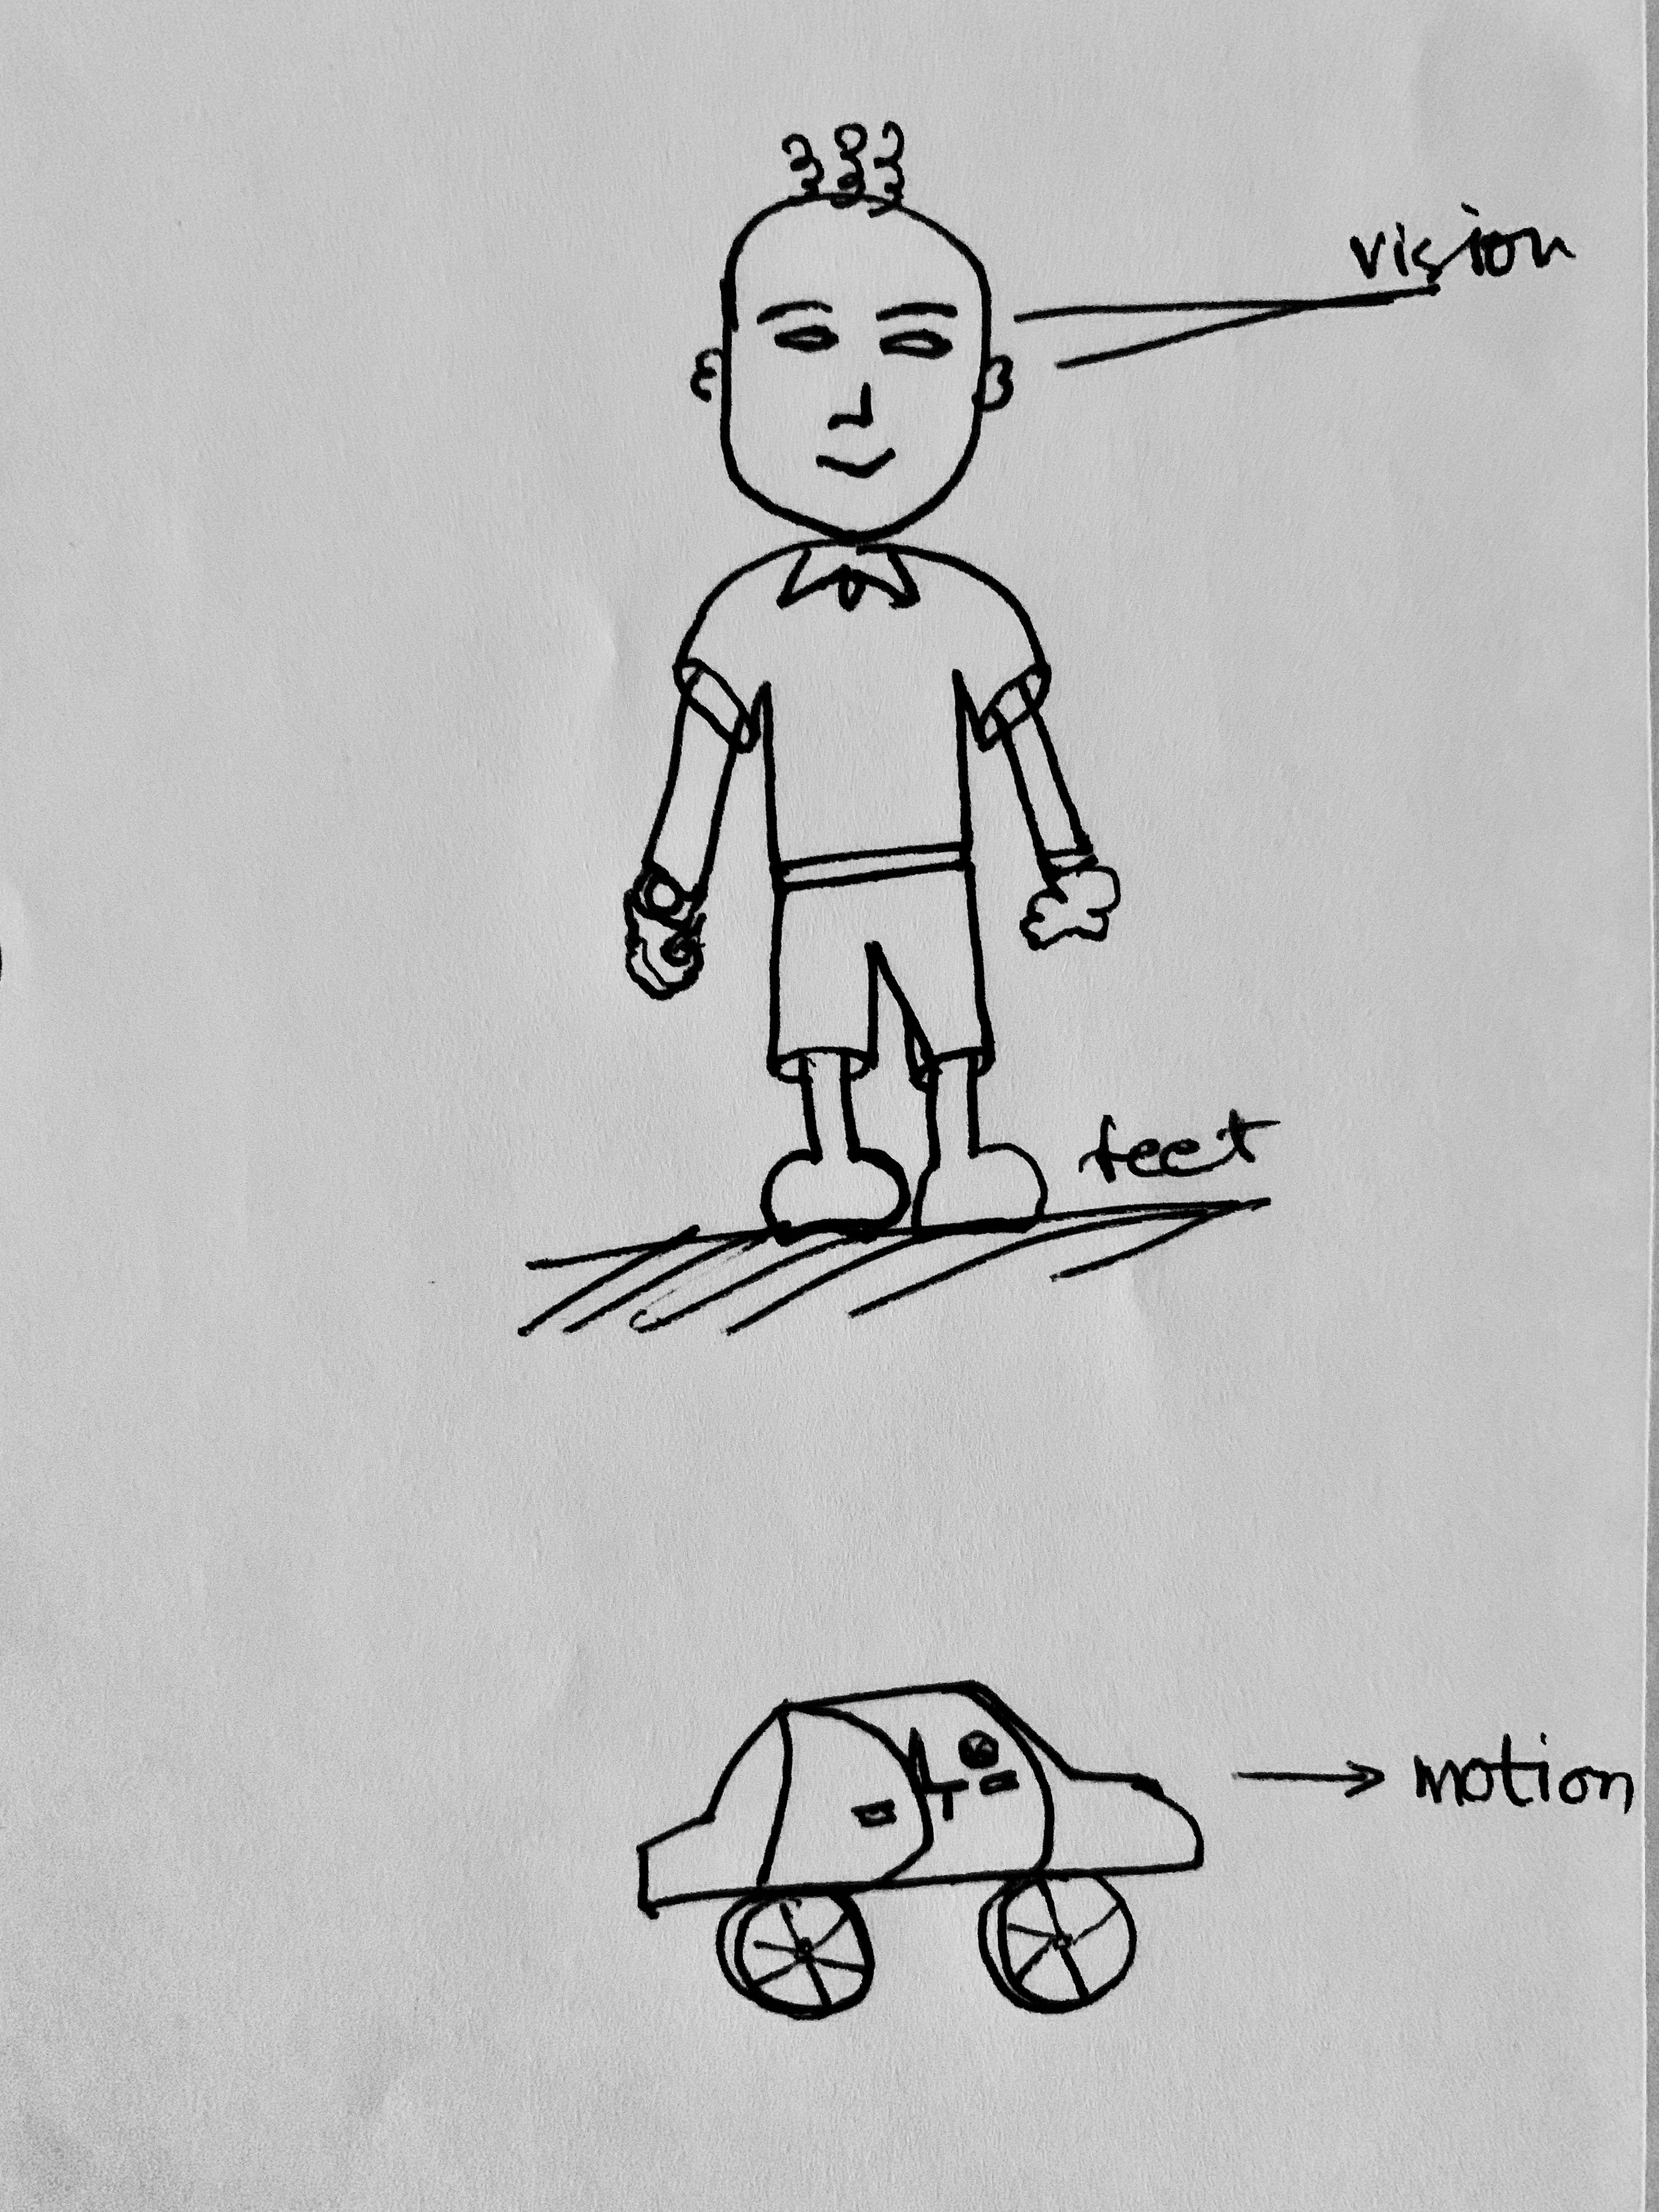 vision
feet
motion